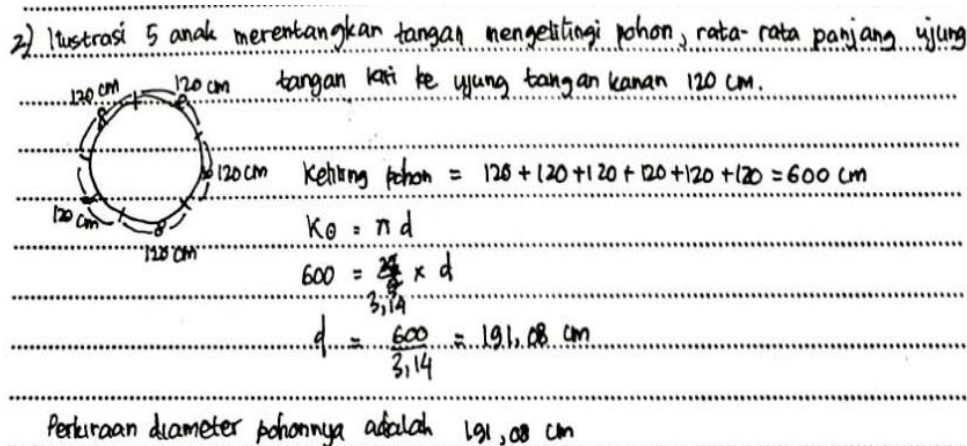 2) Ilustrasi 5 anak merentangkan tangan mengelilingi pohon, rata-rata panjang ujung
tangan kiri ke ujung tangan kanan 120 cm.
120 cm 120 cm
120 cm
120 cm
120 cm
Keliling pohon = 120 + 120 + 120 + 120 + 120 + 120 = 600 cm
K⊙ = π d
600 = 3,14 × d
d = 600/3,14 = 191,08 cm
Perkiraan diameter pohonnya adalah 191,08 cm